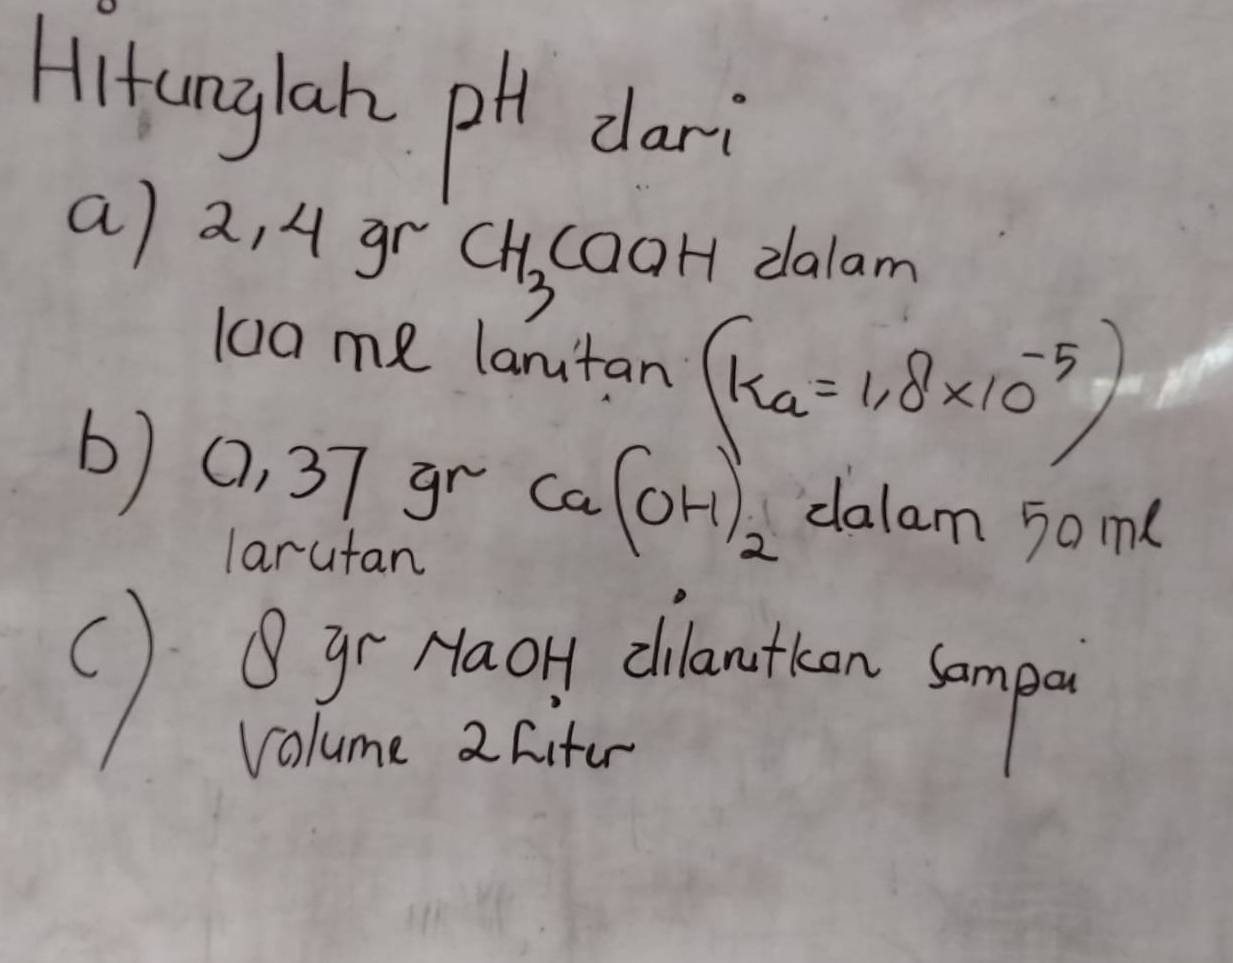 Hitunglah pH dari
a) 2,4 gr CH₃COOH dalam
100 ml larutan (Ka = 1,8 x 10⁻⁵)
b) 0,37 gr Ca(OH)₂ dalam 50 ml
larutan
c) 8 gr NaOH dilarutkan sampai
Volume 2 Liter